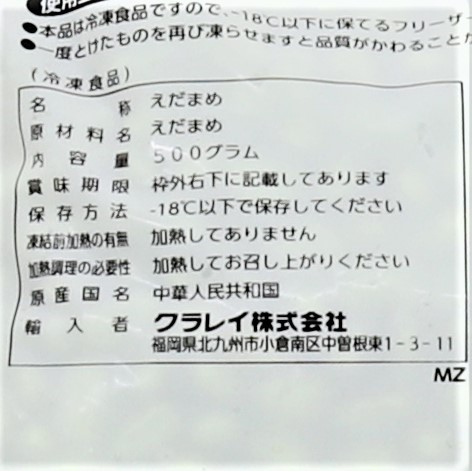 使用上
●本品は冷凍食品ですので、-18℃以下に保てるフリーザ
●一度とけたものを再び凍らせますと品質がかわることが
(冷凍食品)
名称 えだまめ
原材料名 えだまめ
内容量 500グラム
賞味期限 枠外右下に記載してあります
保存方法 -18℃以下で保存してください
凍結前加熱の有無 加熱してありません
加熱調理の必要性 加熱してお召し上がりください
原産国名 中華人民共和国
輸入者 クラレイ株式会社
福岡県北九州市小倉南区中曽根東1-3-11
MZ